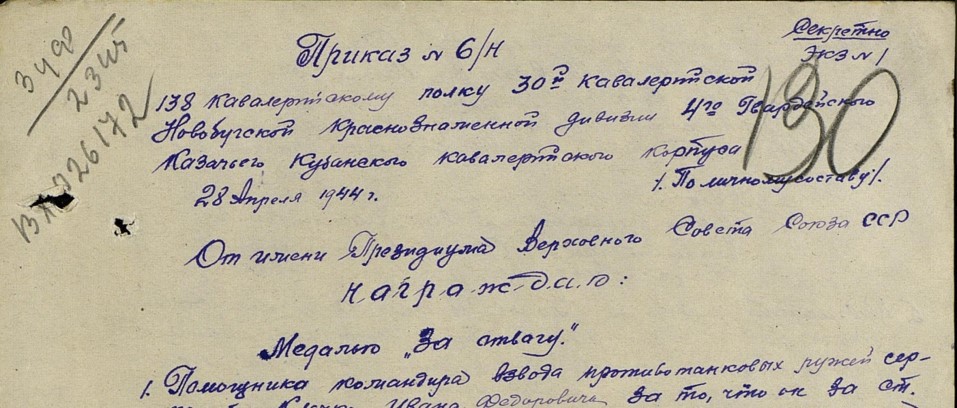 Секретно
Экз N 1
Приказ N 6/Н
138 Кавалерийскому полку 30й Кавалерийской
Новобугской Краснознаменной дивизии 4го Гвардейского
Казачьего Кубанского кавалерийского корпуса
28 Апреля 1944 г.
/. По личному составу /.
От имени Президиума Верховного Совета Союза ССР
награждаю:
Медалью „За отвагу".
1. Помощника командира взвода противотанковых ружей сер-
Ивана Федоровича за то, что он за ст.
130
23 шт
026172